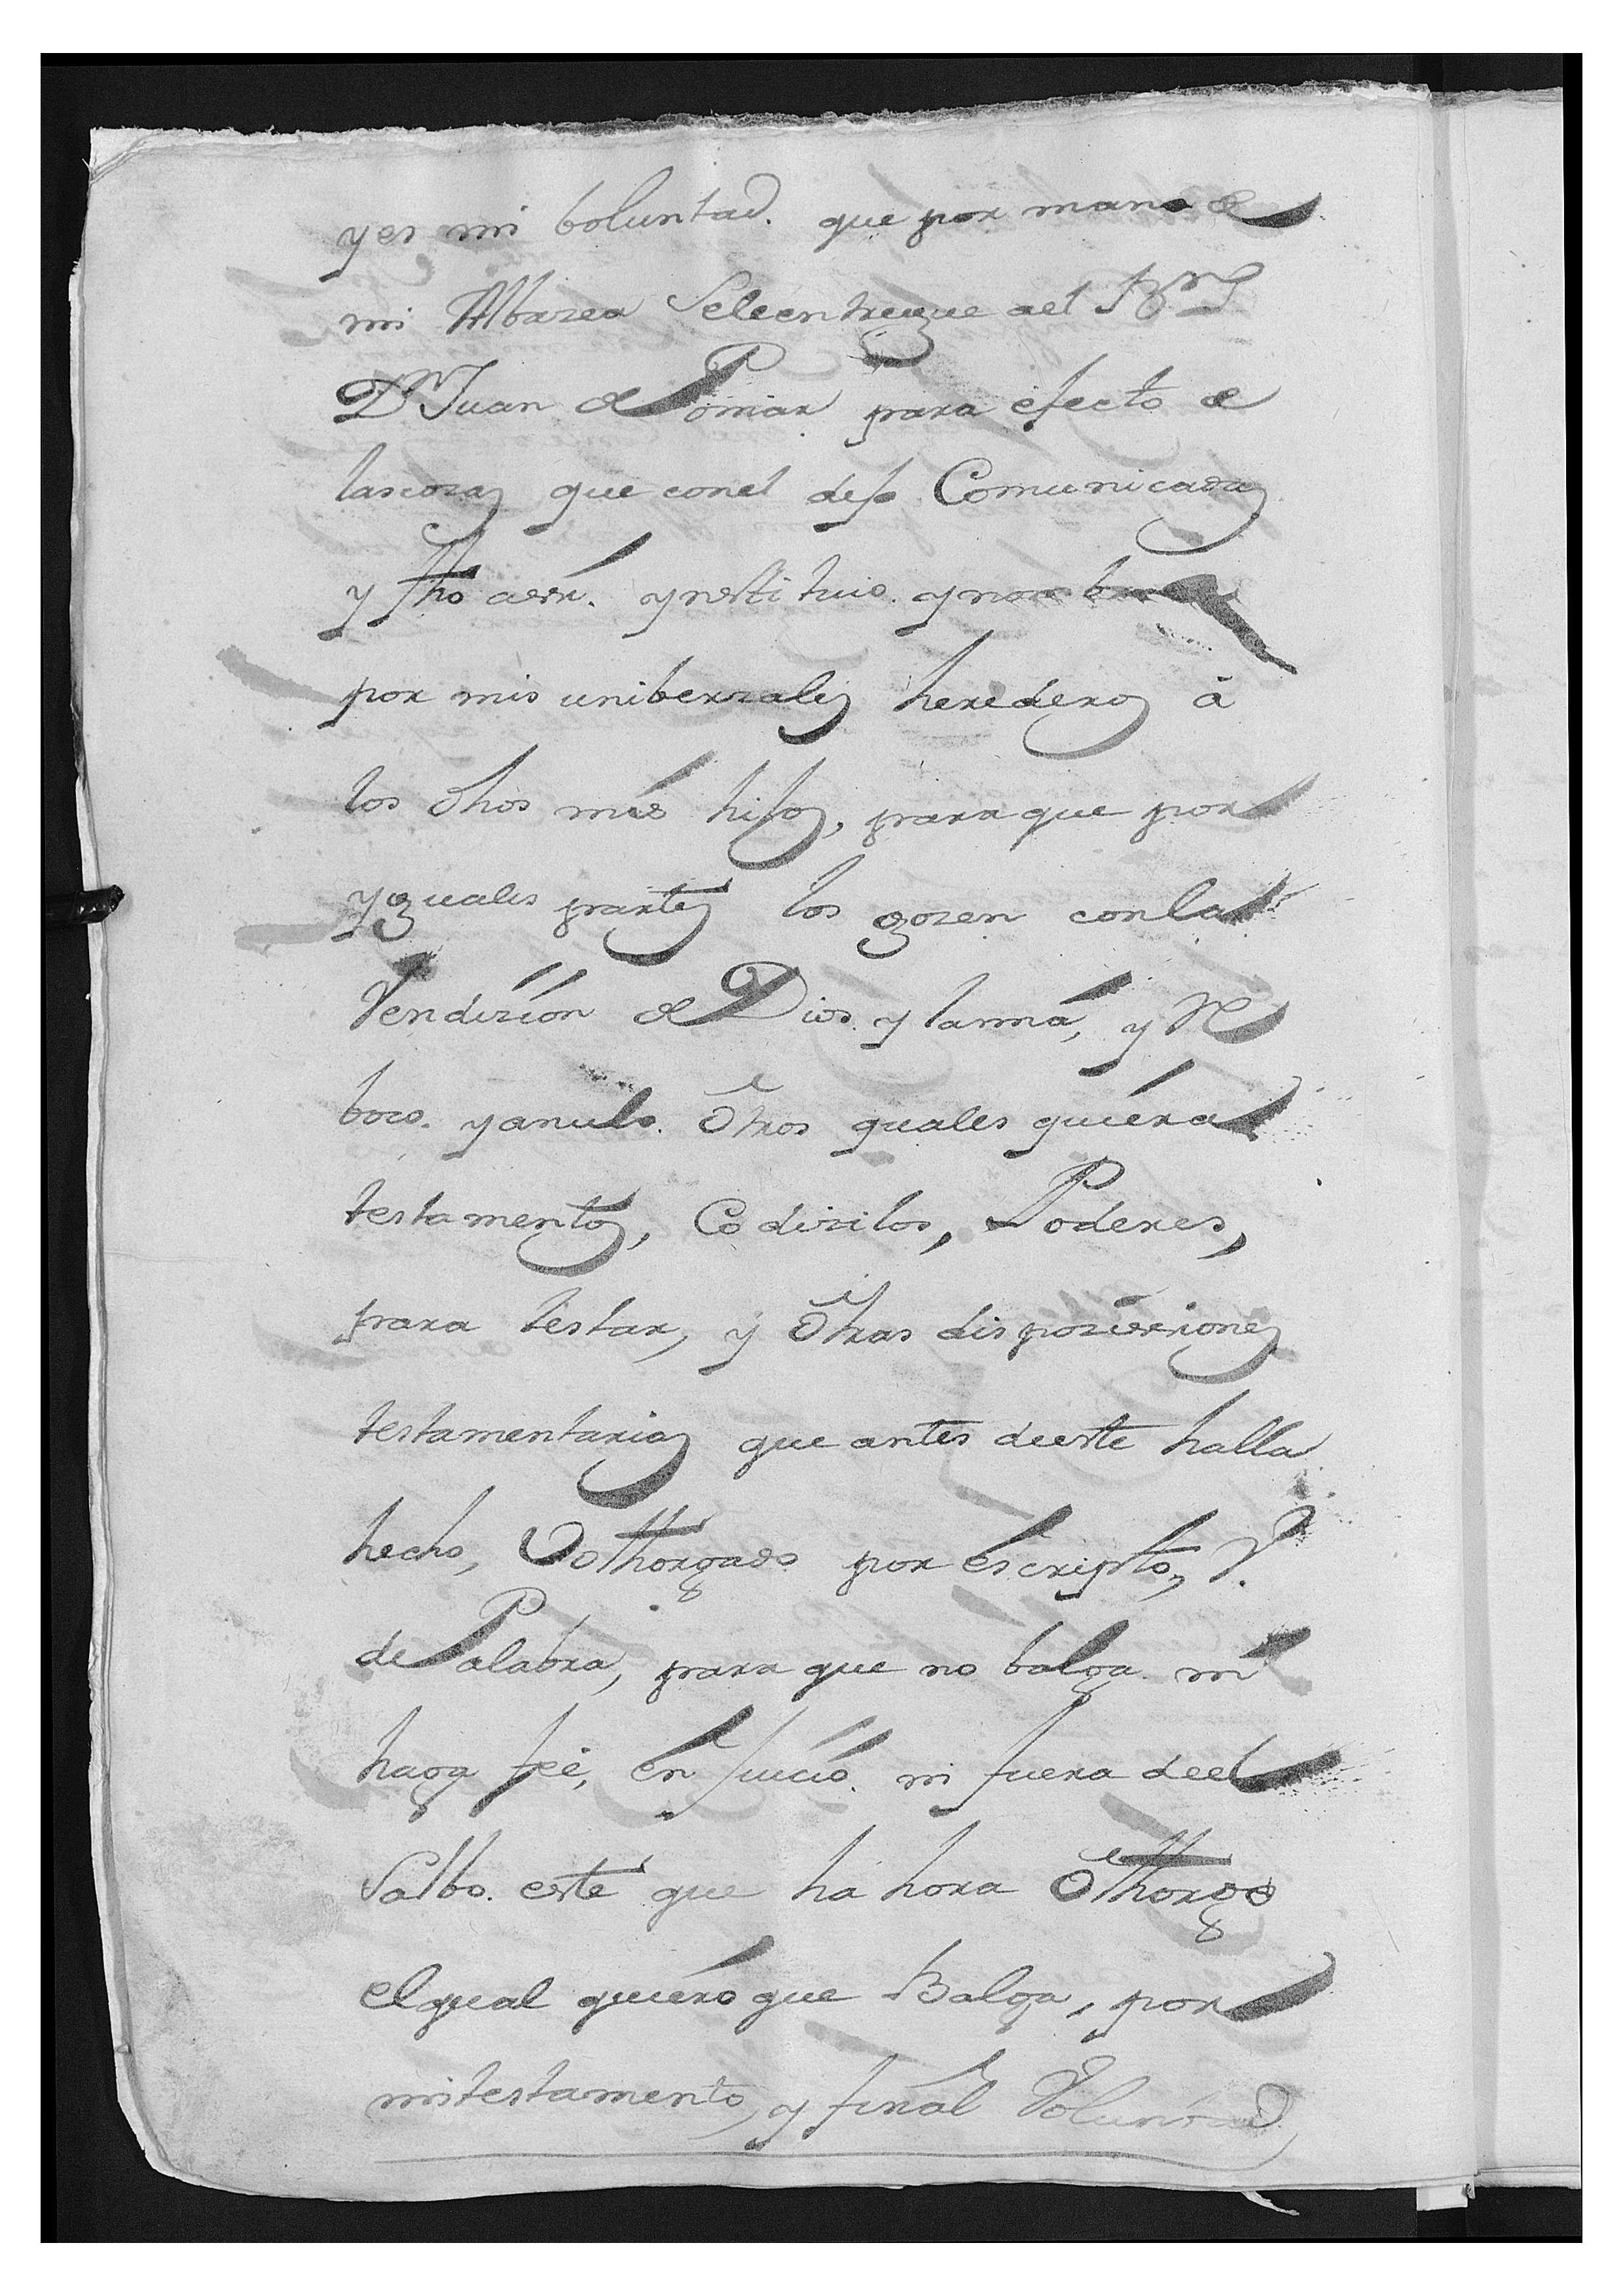 y es mi boluntad. que por mano de
mi Albazea Seleentregue ael
Dn Juan de Pomar para efecto de
lascozas que conel dejo Comunicadas
y fho aeste. ynstituio. y nombro
por mis uniberzales herederos â
los dhos mis hijos, para que por
yguales partes los gozen conla
Vendizíon de Dios y lamia, y Re
boco. y anulo. Otros quales quiera
testamentos, Codizilos, Poderes,
para testar, y Otras dispoziziones
testamentarias que antes deeste halla
hecho, V othorgado por escripto, V.
de Palabra, para que no balga ni
haga feé, en Juicio. ni fuera deel
Salbo. este que ha hora Othorgo
elqual quiero que Balga, por
mi testamento, y final Voluntad